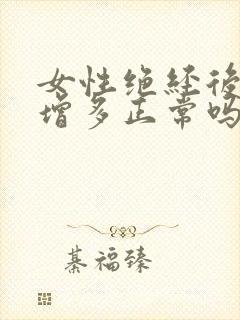 女性绝经後
增多正常吗
綦福臻